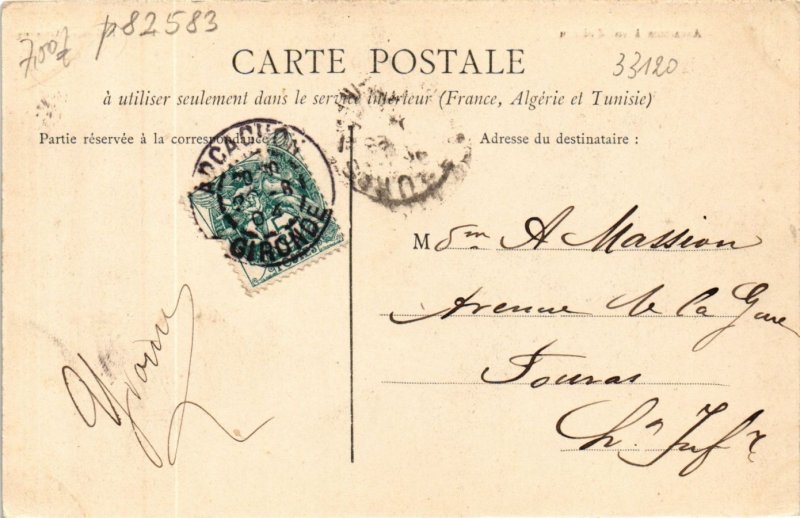 7,00€ p82583
33120
CARTE POSTALE
à utiliser seulement dans le service intérieur (France, Algérie et Tunisie)
Partie réservée à la correspondance
Adresse du destinataire :
ARCACHON
GIRONDE
Mme A Massion
Avenue de la Gare
Fouras
Ch Infre
Yvonne